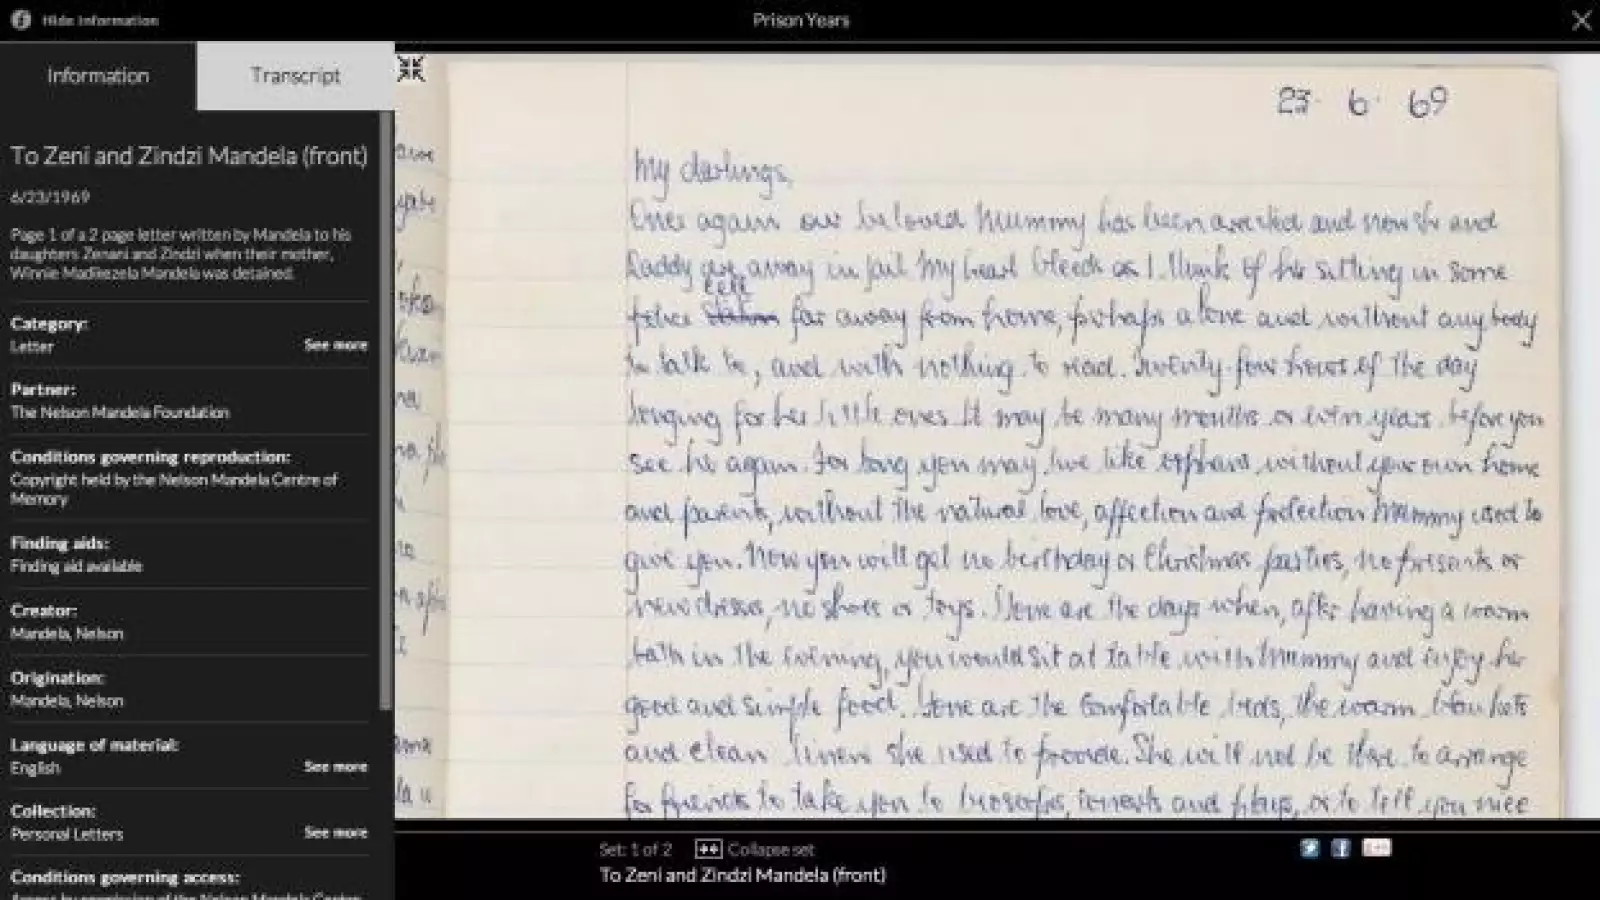 Hide Information
Prison Years
Information
Transcript
To Zeni and Zindzi Mandela (front)
6/23/1969
Page 1 of a 2 page letter written by Mandela to his
daughters Zenani and Zindzi when their mother,
Winnie Madikezela Mandela was detained.
Category:
Letter
See more
Partner:
The Nelson Mandela Foundation
Conditions governing reproduction:
Copyright held by the Nelson Mandela Centre of
Memory
Finding aids:
Finding aid available
Creator:
Mandela, Nelson
Origination:
Mandela, Nelson
Language of material:
English
See more
Collection:
Personal Letters
See more
Conditions governing access:
Access by permission of the Nelson Mandela Centre
23. 6. 69
My darlings,
Once again our beloved Mummy has been arrested and now she and
Daddy are away in jail. My heart bleeds as I think of her sitting in some
cell
police station far away from home, perhaps alone and without anybody
to talk to, and with nothing to read. Twenty-four hours of the day
longing for her little ones. It may be many months or even years before you
see her again. For long you may live like orphans without your own home
and parents, without the natural love, affection and protection Mummy used to
give you. Now you will get no birthday or Christmas parties, no presents or
new dresses, no shoes or toys. Gone are the days when, after having a warm
bath in the evening, you would sit at table with Mummy and enjoy her
good and simple food. Gone are the comfortable beds, the warm blankets
and clean linen she used to provide. She will not be there to arrange
for friends to take you to bioscopes, concerts and plays, or to tell you nice
Set: 1 of 2
Collapse set
To Zeni and Zindzi Mandela (front)